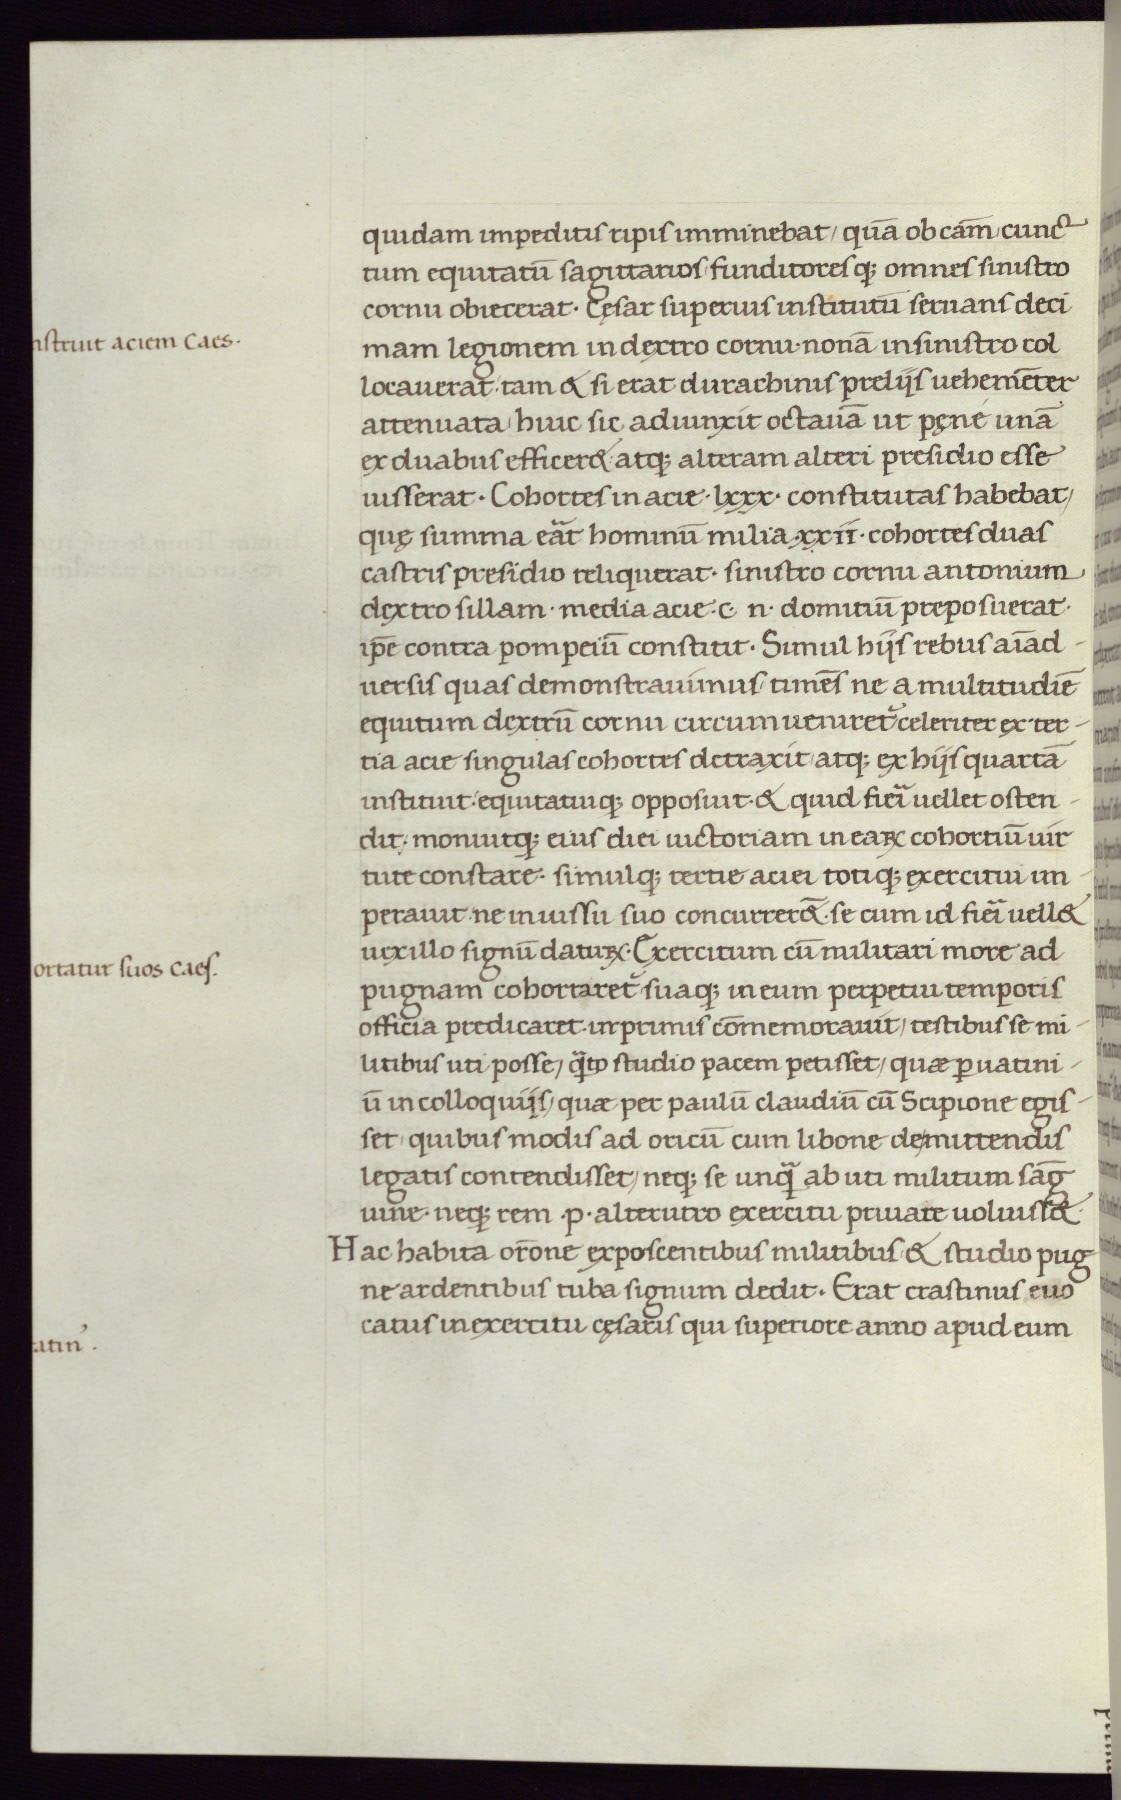 quidam impeditis ripis imminebat / quā ob cām / cunc
tum equitatū sagittarios / funditoresq; omnes sinistro
cornu obiecerat · Cęsar superius institutū seruans deci
nstruit aciem Caes ·
mam legionem in dextro cornu · nonā in sinistro col
locauerat · tam & si erat durachinis prelijs uehemēter
attenuata / huic sic adiunxit octauā ut pęne unā
ex duabus efficer& atq; alteram alteri presidio esse
iusserat · Cohortes in acie · lxxx · constitutas habebat /
quę summa eāt hominū milia · xxii · cohortes duas
castris presidio reliquerat · sinistro cornu antonium
dextro sillam · media acie · c · n · domitiū preposuerat ·
ip̄e contra pompeiū constitit · Simul hijs rebus aīad -
uersis quas demonstrauimus / timēs ne a multitudīe
equitum dextrū cornu circumueniret᷑ celeriter ex ter -
tia acie singulas cohortes detraxit / atq; ex hijs quartā
instituit · equitatuiq; opposuit · & quid fieī uellet osten -
dit · monuitq; eius diei uictoriam in eaꝝ cohortiū uir
tute constare · simulq; tertie aciei totiq; exercitui im -
perauit · ne in iussu suo concurrer&̄ · se cum id fieī uell&
uexillo signū datuꝝ · Exercitum cū militari more ad
ortatur suos Caes.
pugnam cohortaret᷑ suaq; in eum perpetui temporis
officia predicaret · inprimis cōmemorauit / testibus se mi -
litibus uti posse / q̄to studio pacem petisset / quæ ꝑ uatini -
ū in colloquijs / quæ per paulū claudiū cū Scipione egis -
set / quibus modis ad oricū cum libone demittendis
legatis contendisset / neq; se unq̄ ab uti militum sāg
uine · neq; rem · p · alterutro exercitu priuare uoluiss& ·
Hac habita or̄one exposcentibus militibus & studio pug
ne ardentibus tuba signum dedit · Erat crastinus euo
catus in exercitu cęsaris qui superiore anno apud eum
atin᾽ ·